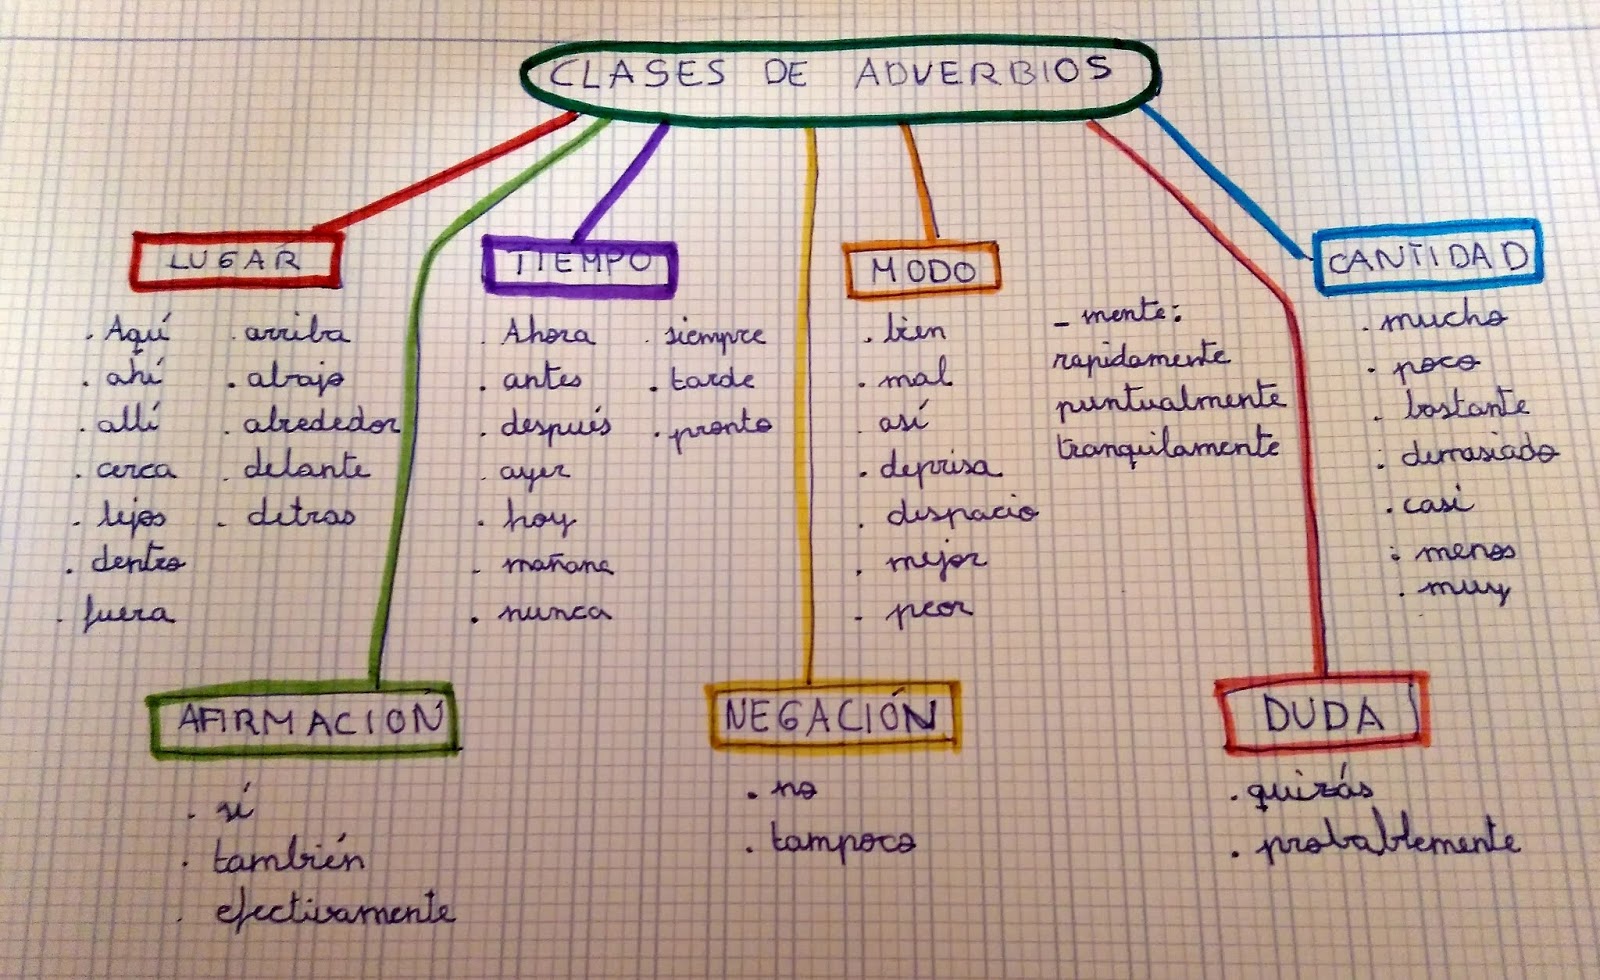 CLASES DE ADVERBIOS
LUGAR
. Aquí
. ahí
. allí
. cerca
. lejos
. dentro
. fuera
. arriba
. abajo
. alrededor
. delante
. detras
TIEMPO
. Ahora
. antes
. después
. ayer
. hoy
. mañana
. nunca
. siempre
. tarde
. pronto
MODO
. bien
. mal
. así
. deprisa
. despacio
. mejor
. peor
- mente:
rapidamente
puntualmente
tranquilamente
CANTIDAD
. mucho
. poco
. bastante
. demasiado
. casi
. menos
. muy
AFIRMACIÓN
. sí
. también
. efectivamente
NEGACIÓN
. no
. tampoco
DUDA
. quizás
. probablemente